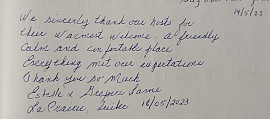 14/5/23
We sincerely thank our hosts for
their warmest welcome. a friendly
Calm and comfortable place
Everything met our expectations
Thank you so much
Estelle &
La Prairie, 18/05/2023